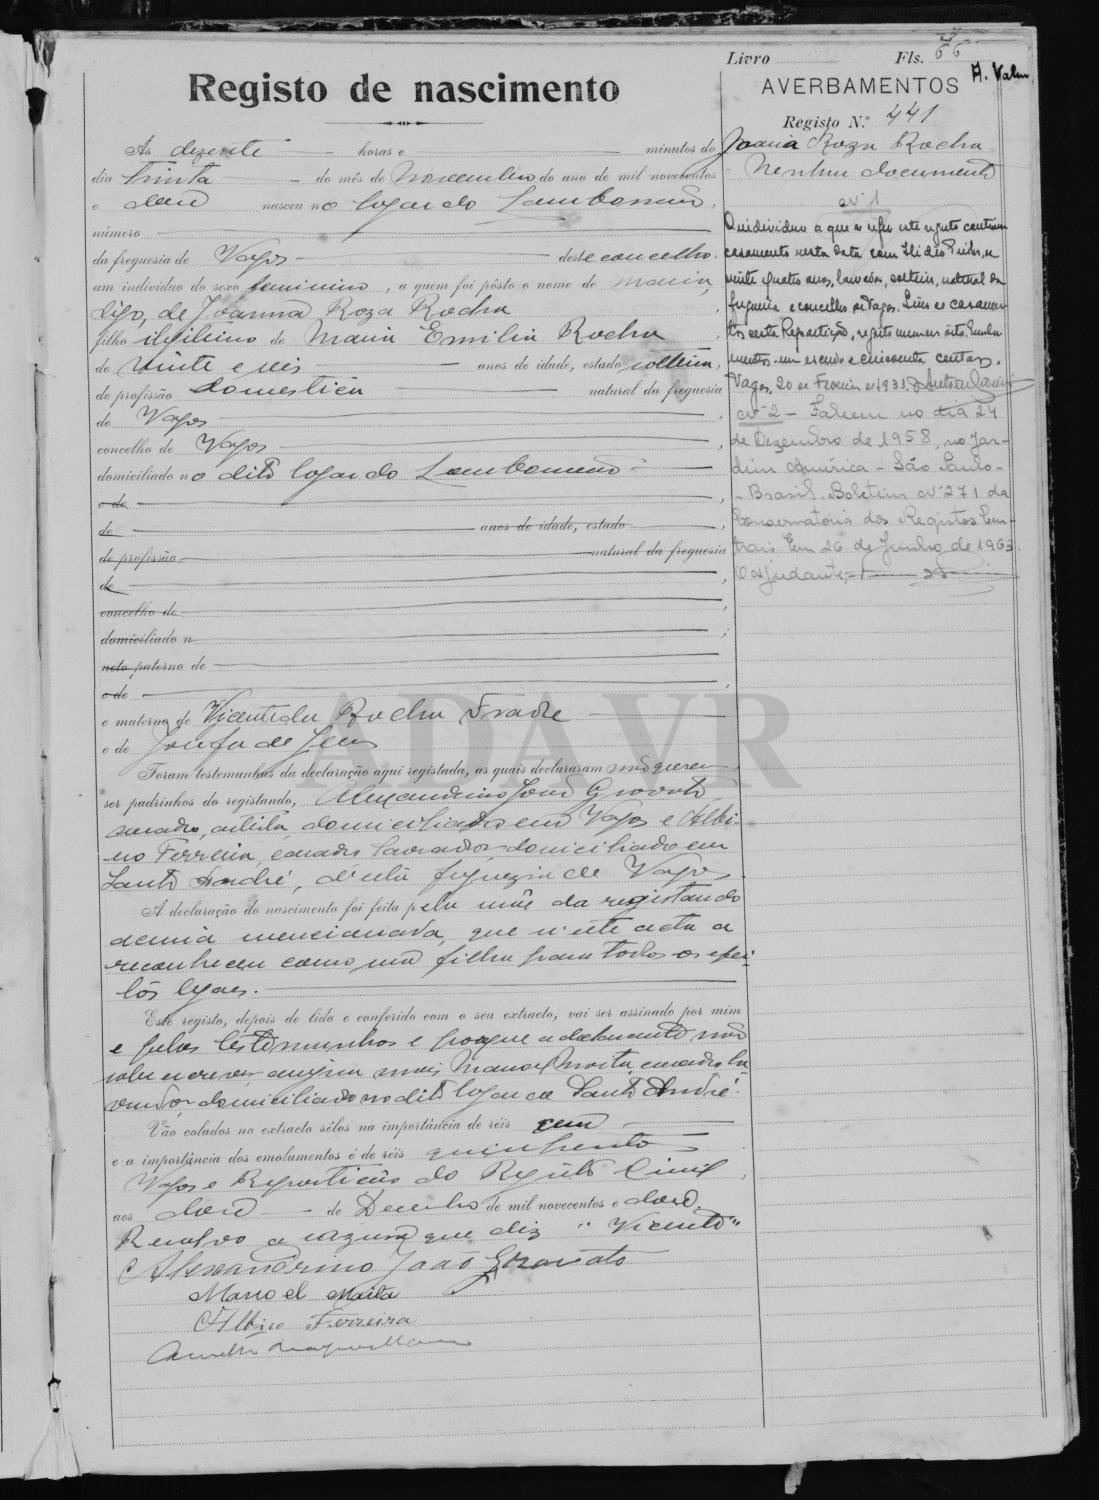 Livro Fls. 66
A. Valm.
Registo de nascimento
AVERBAMENTOS
Registo N.º 441
Joana Roza Rocha
Nenhum documento
As dezesete horas e minutos do
dia trinta do mês de Novembro do ano de mil novecentos
e doze nasceu no logar do Lombomeão,
número
da freguesia de Vagos deste concelho,
um individuo do sexo feminino, a quem foi pôsto o nome de Maria,
digo, de Joanna Roza Rocha
filho ilegitimo de Maria Emilia Rocha
de vinte e seis anos de idade, estado solteira,
de profissão domestica natural da freguesia
de Vagos
concelho de Vagos
domiciliado no dito logar do Lombomeão
e de
de anos de idade, estado
de profissão natural da freguesia
de
concelho de
domiciliado n
neto paterno de
e de
e materno de Vicente da Rocha Frade
e de Josefa de Jesus
Foram testemunhas da declaração aqui registada, as quais declararam não querer
ser padrinhos do registando, Alexandrino João Gravato
casado, artista, domiciliado em Vagos e Albi-
no Ferreira, casado lavrador domiciliado em
Santo André, d'esta freguezia de Vagos.
A declaração do nascimento foi feita pela mãe da registando
acima mencionada, que n'este acto a
reconheceu como sua filha para todos os efei-
tos legaes.
Este registo, depois de lido e conferido com o seu extracto, vai ser assinado por mim
e pelas testemunhas e porque a declarante não
sabe escrever, assigna mais Manoel Moita, casado la-
vrador, domiciliado no dito logar de Santo André.
Vão colados no extracto sêlos na importância de réis cem
e a importância dos emolumentos é de réis quinhentos
Vagos e Repartição do Registo Civil,
aos doze de Dezembro de mil novecentos e doze.
Resalvo a razura que diz "Vicente"
Alexandrino João Gravato
Manoel Moita
Albino Ferreira
Nº 1
O individuo a que se refere este registo contraiu
casamento nesta data com Ilidio, de
vinte quatro anos, lavrador, solteiro, natural da
freguesia e concelho de Vagos. Livro de casamen-
tos desta Repartição, registo numero oito. Emolu-
mentos um escudo e cincoenta centavos.
Vagos, 20 de Fevereiro de 1933.
Nº 2 - Faleceu no dia 24
de Dezembro de 1958, no Jar-
dim América - São Paulo -
- Brasil. Boletim Nº 271 da
Conservatória dos Registos Cen-
trais. Em 26 de Junho de 1963.
O Ajudante,
ADAVR